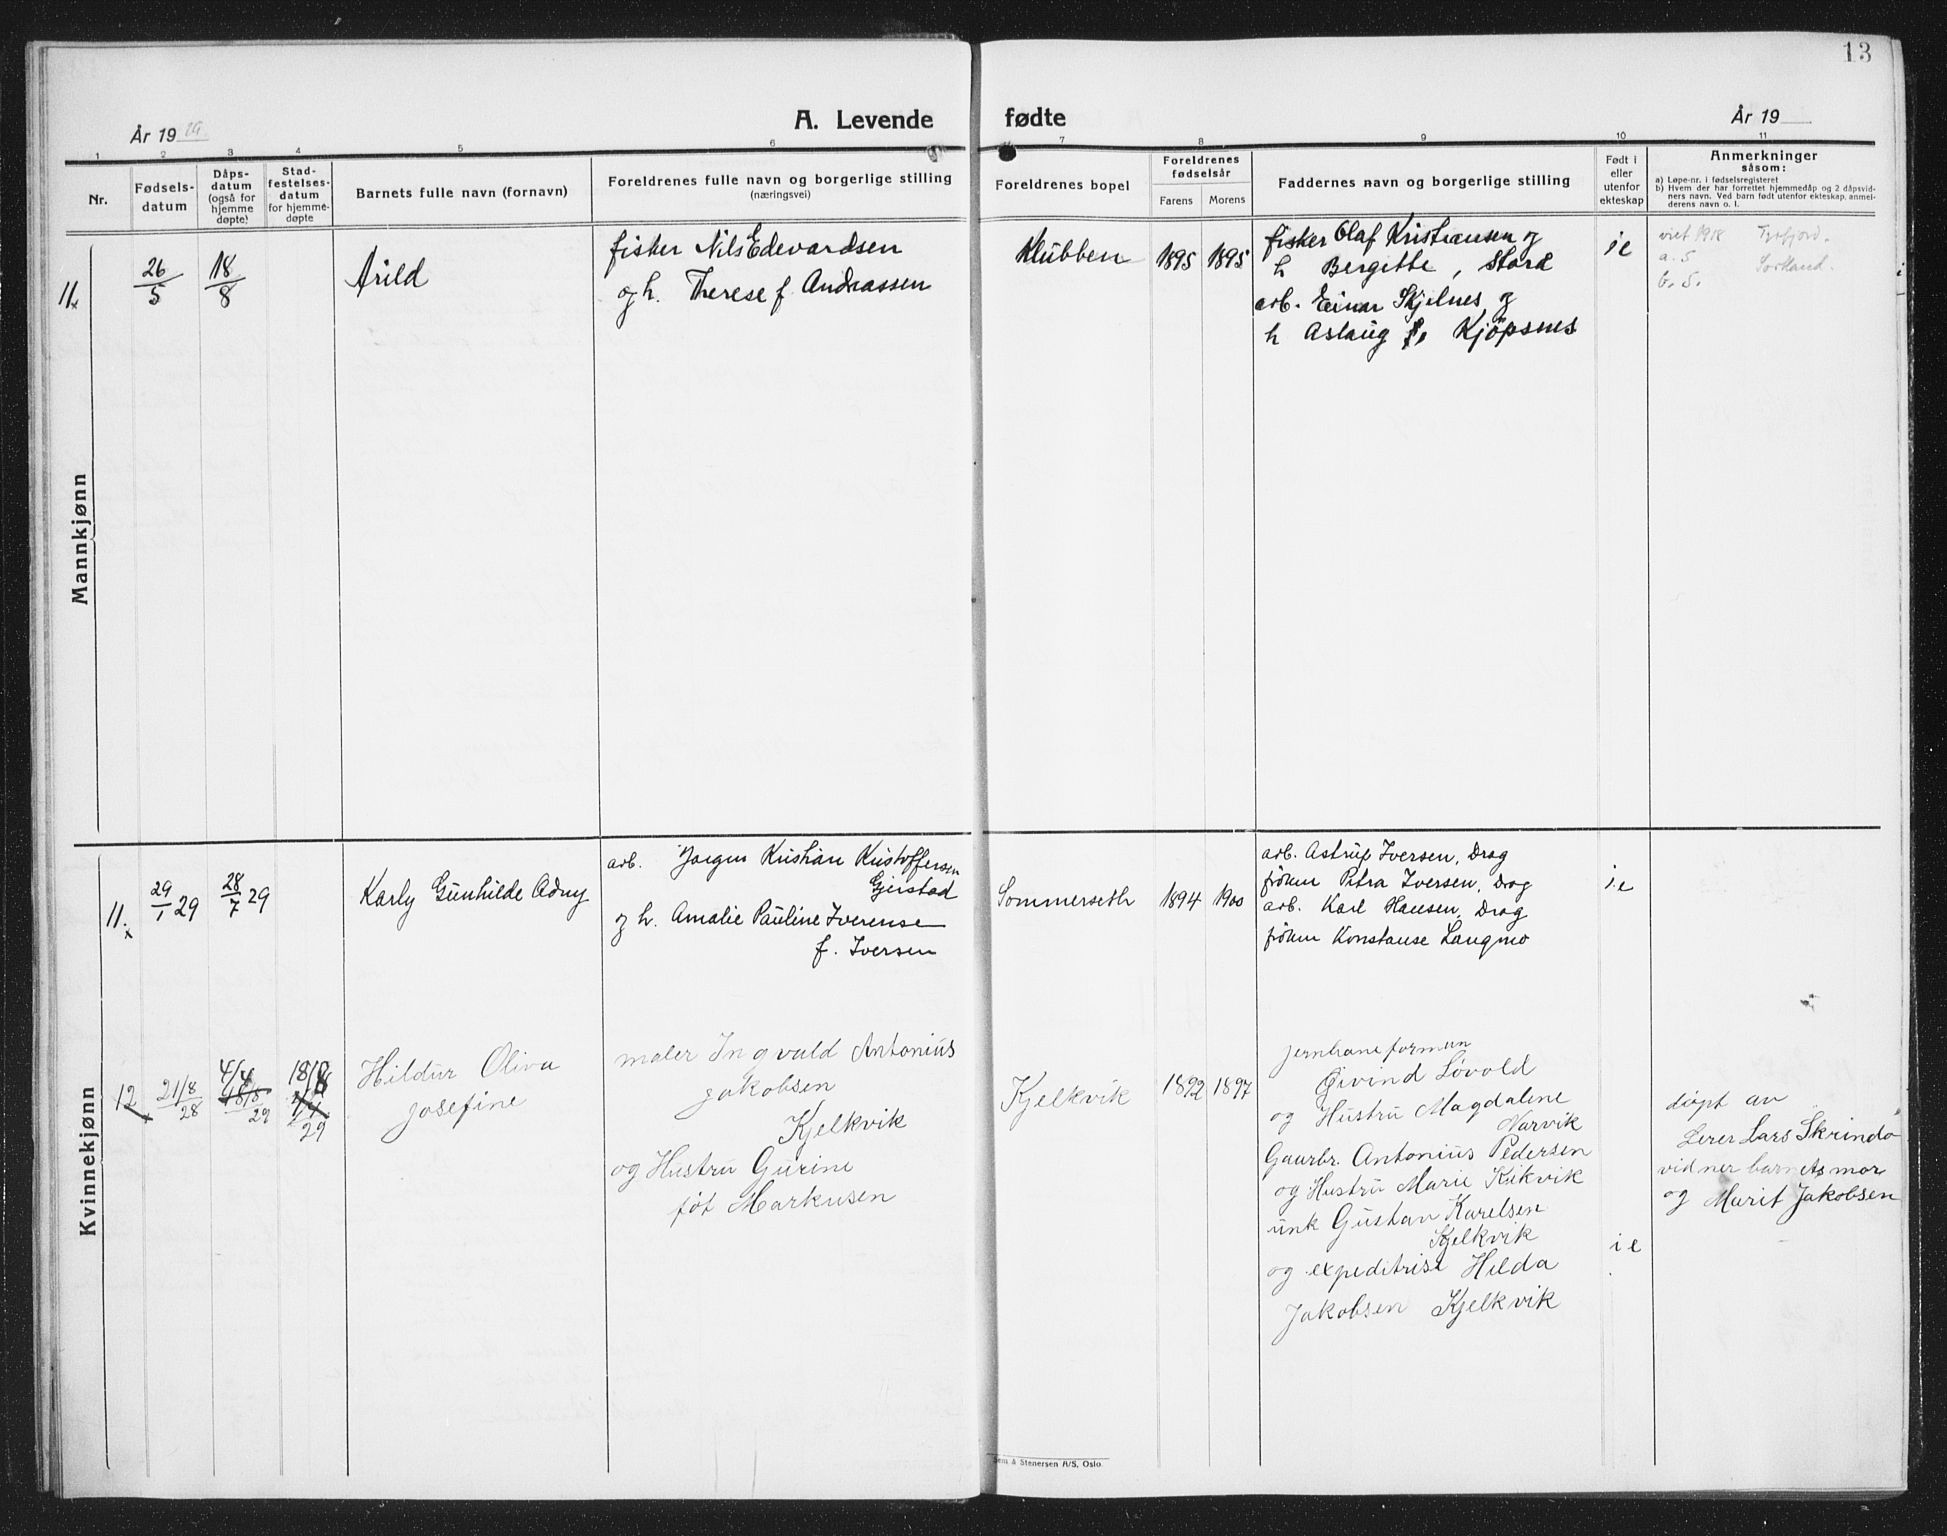 13
A. Levende fødte
År 19 29
År 19
1 2 3 4 5 6 7 8 9 10 11
Nr.
Fødsels-
datum
Dåps-
datum
(også for
hjemme
døpte)
Stad-
festelses-
datum
for hjemme-
døpte
Barnets fulle navn (fornavn)
Foreldrenes fulle navn og borgerlige stilling
(næringsvei)
Foreldrenes bopel
Foreldrenes
fødselsår
Farens Morens
Faddernes navn og borgerlige stilling
Født i
eller
utenfor
ekteskap
Anmerkninger
såsom:
a) Løpe-nr. i fødselsregisteret
b) Hvem der har forrettet hjemmedåp og 2 dåpsvid-
ners navn. Ved barn født utenfor ekteskap, anmel-
derens navn o. l.
Mannkjønn
11.
26/5
18/8
Arild
fisker Nils Edevardsen
og h. Therese f. Andreassen
Klubben
1895 1895
fisker Olaf Kristiansen og
h Bergitte, Stord
arb. Einar Skjelnes og
h Aslaug f, Kjøpsnes
i e
viet 1918 Tysfjord.
a. 5
b. 5.
Kvinnekjønn
11.
29/1 29
28/7 29
Karly Gunhilde Adny
arb. Jørgen Kristian Kristoffersen
Gjerstad
og h. Amalie Pauline Iverense
f. Iversen
Sommerseth
1894 1900
arb. Astrup Iversen, Drag
frøken Petra Iversen, Drag
arb. Karl Hansen, Drag
frøken Konstanse Langmo
i.e
12
21/8
28
4/4
18/8
29
18/8
29
Hildur Oliva
Josefine
maler Ingvald Antonius
Jakobsen
Kjelkvik
og Hustru Gurine
føt Markusen
Kjelkvik
1892 1897
jernbaneforman
Øivind Løvold
og Hustru Magdalene
Narvik
Gaurbr. Antonius Pedersen
og Hustru Marie Kjkvik
unk Gustan Karelsen
Kjelkvik
og expeditrise Hilda
Jakobsen Kjelkvik
i e
døpt av
Lerer Lars Skrindo
vidner barnets mor
og Marit Jakobsen
& Stenersen A/S, Oslo.